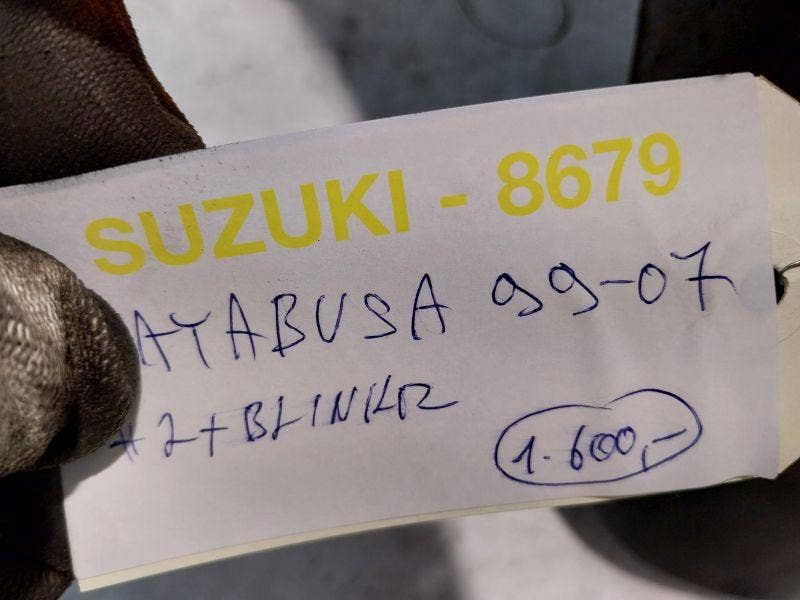 SUZUKI - 8679
AYABUSA 99-07
+2+BLINKR
1.600,-